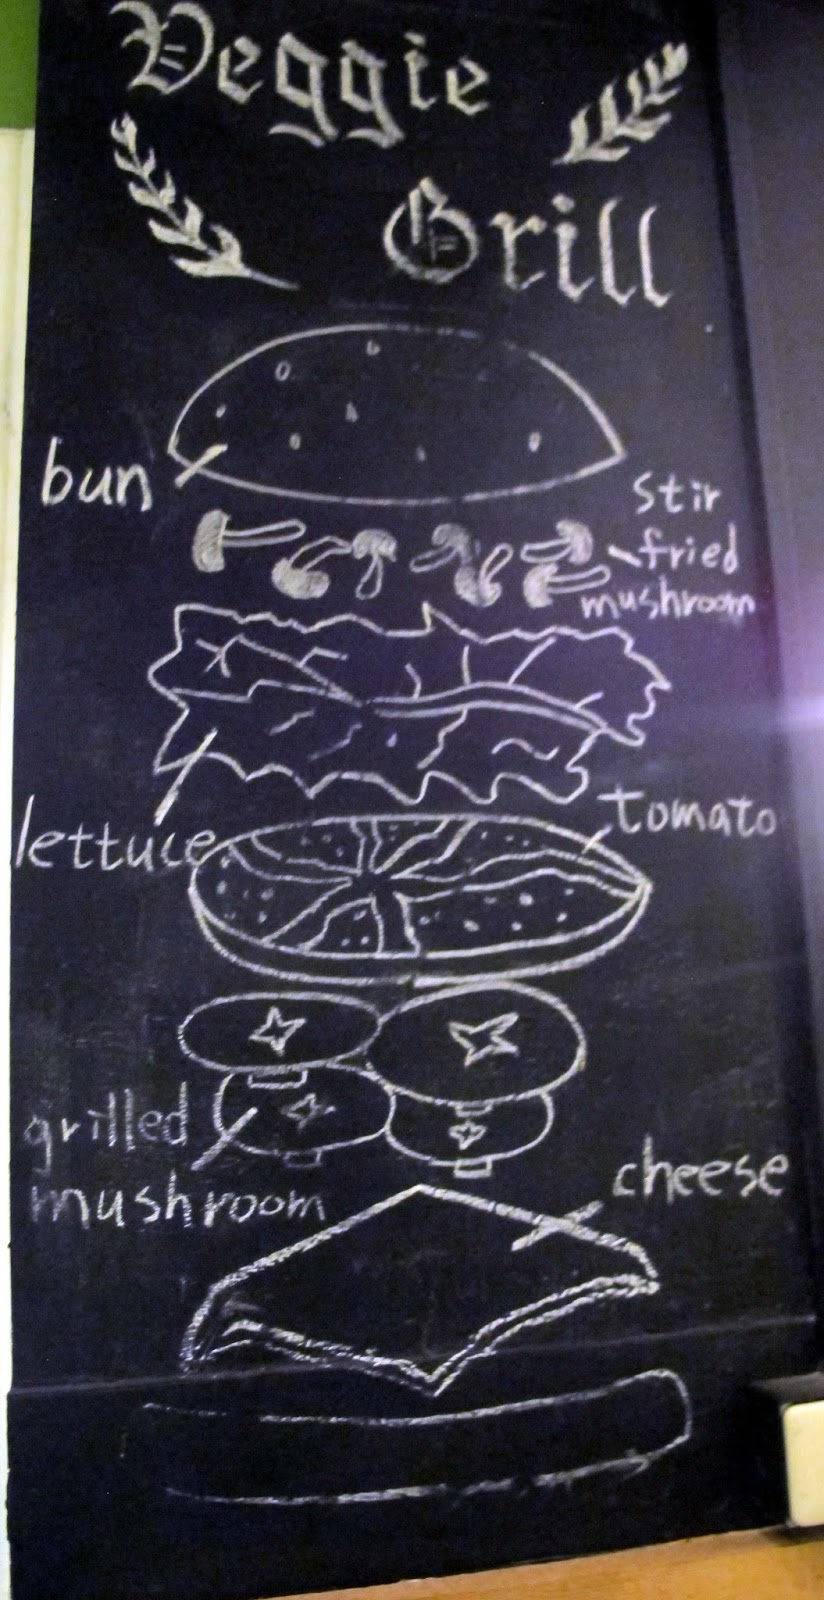 Veggie
Grill
bun
Stir
fried
mushroom
lettuce
tomato
grilled
mushroom
cheese